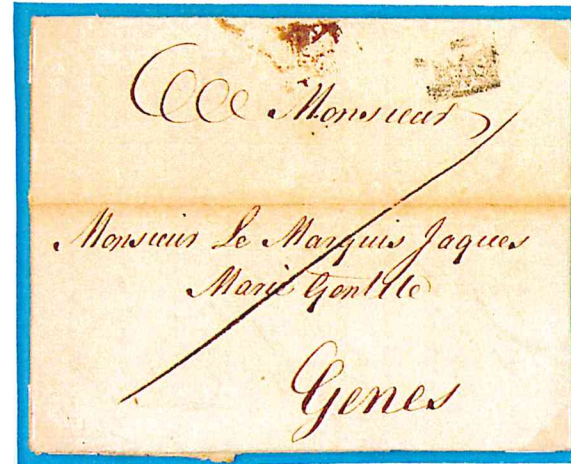 Monsieur
Monsieur Le Marquis Jaques
Marie Gentile
Genes